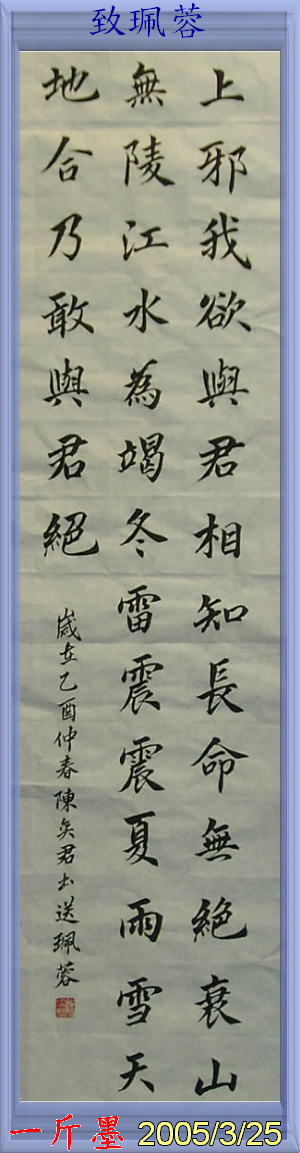 致珮蓉
上邪我欲與君相知長命無絕衰山
無陵江水為竭冬雷震震夏雨雪天
地合乃敢與君絕
歲在乙酉仲春陳君书送珮蓉
一斤墨 2005/3/25